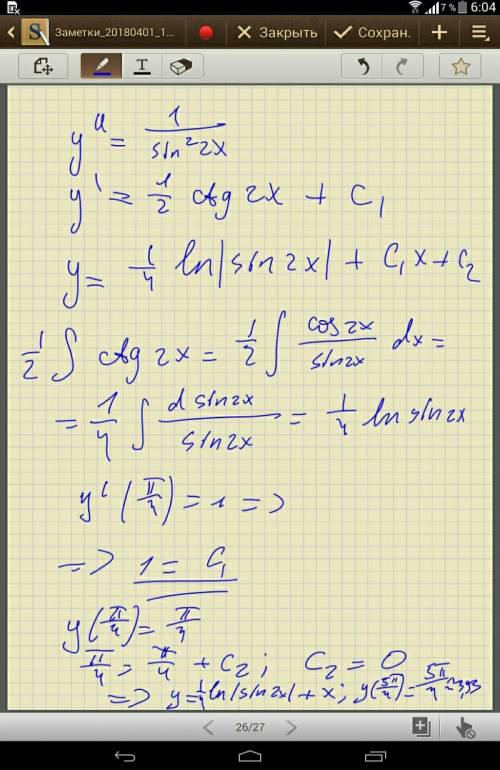 7% 6:04
Заметки_20180401_1... Закрыть Сохран.
y'' = 1/sin²2x
y' = 1/2 ctg 2x + C₁
y = 1/4 ln|sin2x| + C₁x + C₂
1/2 ∫ ctg 2x = 1/2 ∫ cos2x/sin2x dx =
= 1/4 ∫ d sin2x/sin2x = 1/4 ln sin2x
y'(π/4) = 1 =>
=> 1 = C₁
y(π/4) = π/4
π/4 = π/4 + C₂ ; C₂ = 0
=> y = 1/4 ln|sin2x| + x ; y(5π/4) = 5π/4 ≈ 3,93
26/27